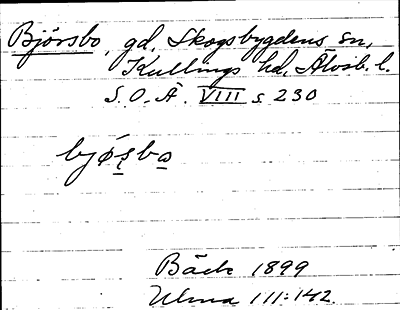 Björsbo, gd, Skogsbygdens sn,
Kullings hd, Älvsb. l.
S. O. Ä. VIII s. 230
bjǿs̱bo̱
Bäck 1899
Ulma 111:142.